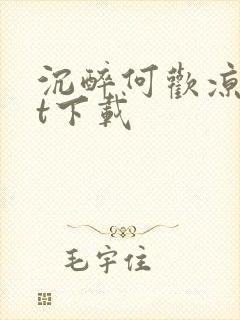 沉醉何歡涼
t下載
毛宇住